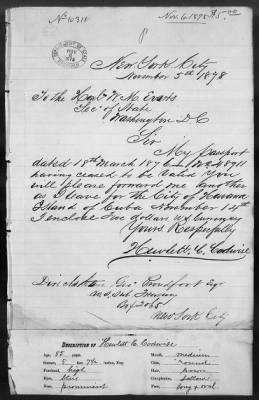 No 10311
Nov. 6. 1878 $5.00
New York City
November 5th 1878
To the Honble W. M. Evarts
Secy of State
Washington D.C.
Sir
My Passport
dated 18th March 1876
having ceased to be Valid You
will please forward me another
as I leave for the City of Havana
Island of Cuba November 14th
I enclose five dollars U.S. Currency
Yours Respectfully
Hewlett C. Codwise
Geo. Proudfoot Esqr
U.S. Sub Treasury
New York City
DESCRIPTION OF Hewlett C. Codwise
Age, 55 years. Mouth, medium
Stature, 5 feet, 7 1/2 inches, Eng. Chin, round
Forehead, high Hair, brown
Eyes, blue Complexion, sallow
Nose, prominent Face, long & oval